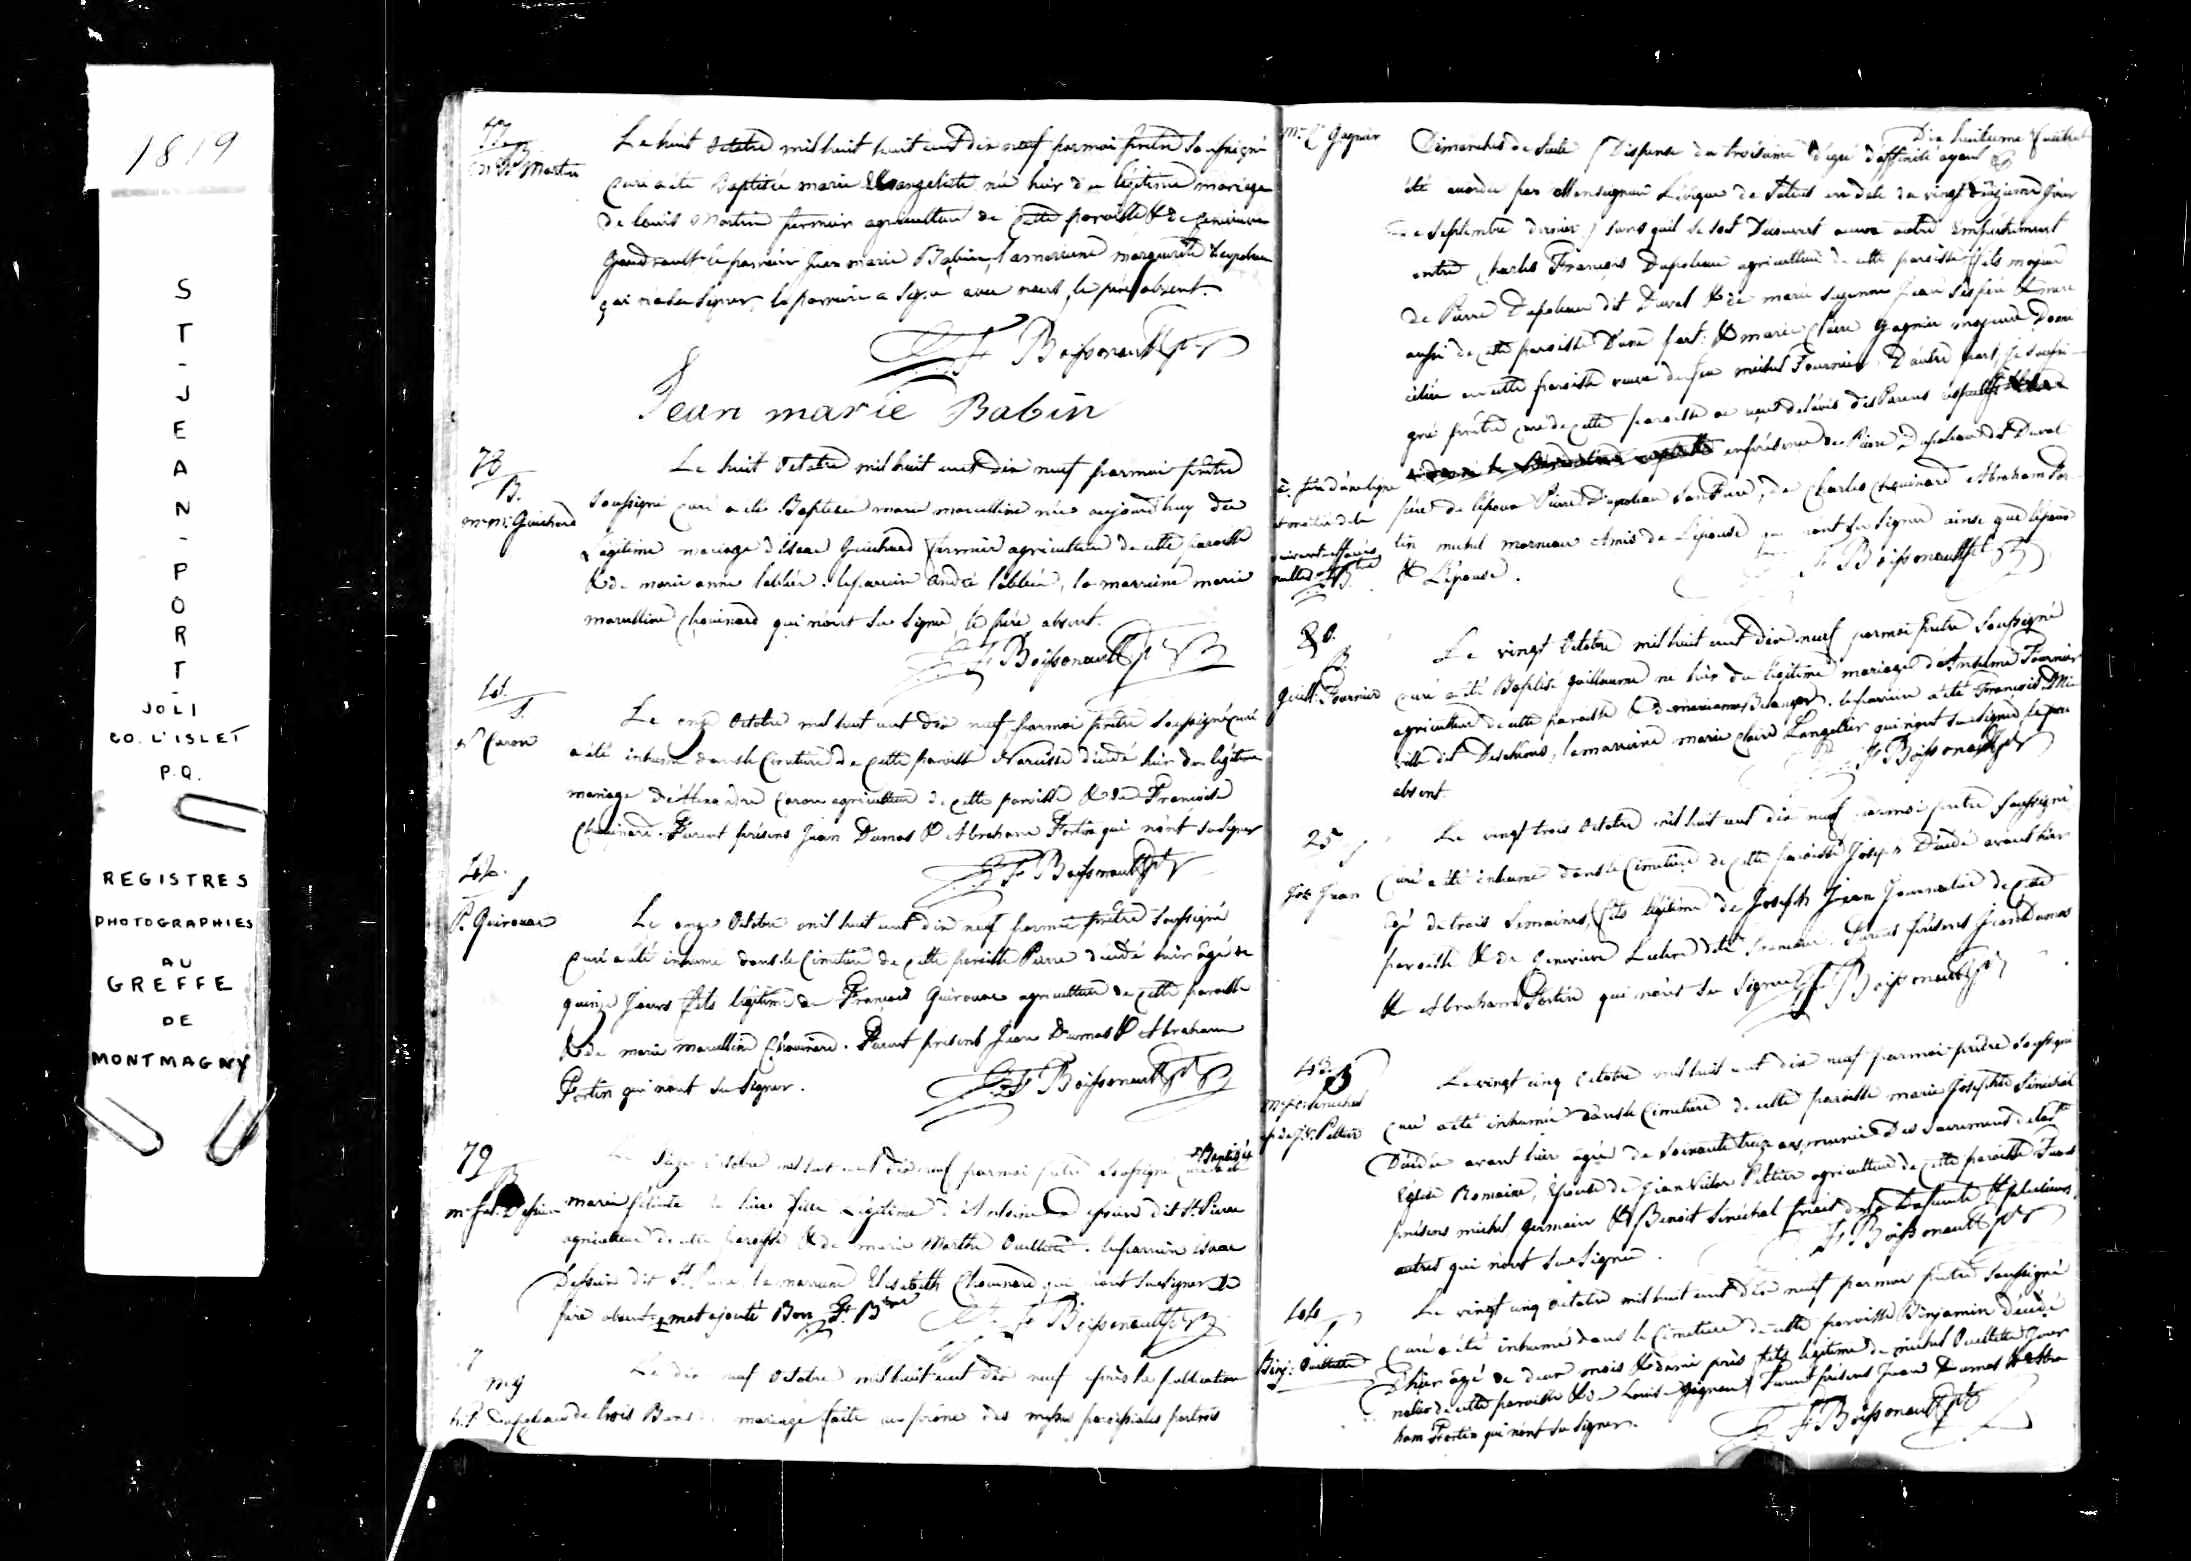 1819
ST-JEAN-PORT-
JOLI
CO. L'ISLET
P.Q.
REGISTRES
PHOTOGRAPHIES
AU
GREFFE
DE
MONTMAGNY
77
B.
Martin
Le huit octobre mil huit huit cent dix neuf par moi prêtre soussigné
curé a été Baptisée marie Evangeliste née hier du légitime mariage
de louis Martin fermier agriculteur de cette paroisse & de genevieve
Gaudreault le parrain Jean marie Babin, la marraine marguerite
qui n'a su signer, le parrain a signé avec nous, le père absent.
F Boissonnault ptr
Jean marie Babin
78
B.
m. m. Guichard
Le huit Octobre mil huit cent dix neuf par moi prêtre
soussigné curé a été Baptisée marie marcelline née aujourd'huy du
Légitime mariage d'Isaac Guichard fermier agriculteur de cette paroisse
& de marie anne leblée. le parrain André leblée, la marraine marie
marcelline Chouinard qui n'ont su signer, le père absent.
F Boissonnault ptr
S.
n. Caron
Le onze Octobre mil huit cent dix neuf par moi prêtre soussigné curé
a été inhumé dans le Cimetière de cette paroisse Narcisse décédé hier du légitime
mariage d'Alexandre Caron agriculteur de cette paroisse & de Françoise
Chouinard. Furent présens Jean Dumas & Abraham Fortin qui n'ont su signer
F Boissonnault ptr
S
P. Quirouac
Le onze Octobre mil huit cent dix neuf par moi prêtre soussigné
curé a été inhumé dans le Cimetière de cette paroisse Pierre décédé hier âgé de
quinze Jours fils légitime de François Quirouac agriculteur de cette paroisse
& de marie marcelline Chouinard. Furent présens Jean Dumas & Abraham
Fortin qui n'ont su signer.
F Boissonnault ptr
79
B
Le seize Octobre mil huit cent dix neuf par moi prêtre soussigné curé a été
+ Baptisée
marie félicité fille Légitime d'Antoine dit St. Pierre
agriculteur de cette paroisse & de marie Marthe Ouellette. le parrain Isaac
dit St. Pierre la marraine Elisabeth Chouinard qui n'ont su signer le
père absent + mot ajouté Bon
F Boissonnault ptr
7
m g
Le dix neuf Octobre mil huit cent dix neuf après la publication
de trois Bans de mariage faite au prône des messes paroissiales par trois
Mie. Cl. Gagnier
Dix huitieme
Dimanches de suite / Dispense du troisième dégré d'affinité ayant
été accordée par Monseigneur L'évêque de Salut en date du vingt deuxieme Jour
de septembre dernier / sans qu'il se soit découvert aucun autre empêchement
entre Charles François Dupoleau agriculteur de cette paroisse fils majeur
de Pierre Dupoleau dit Duval & de marie suzanne Jean ses père & mere
aussi de cette paroisse D'une part: & marie Claire Gagnier majeure Domi
ciliée en cette paroisse veuve de feu michel Fournier D'autre part, Je soussi-
gné prêtre curé de cette paroisse ai reçu de l'avis des Parens
en présence de Pierre Dupoleau dit Duval
père de l'époux Pierre Dupoleau son Frère, de Charles Chouinard Abraham For
tin michel morneau Amis de L'épouse qui n'ont su signer ainsi que l'époux
& L'épouse.
F Boissonnault ptr
80.
B.
Guill. Fournier
Le vingt Octobre mil huit cent dix neuf par moi prêtre soussigné
curé a été Baptisé guillaume né hier du légitime mariage d'Anselme Fournier
agriculteur de cette paroisse & de marianne Belanger. le parrain a été François Mi
ville dit Deschênes, la marraine marie Claire Langelier qui n'ont su signer le père
absent.
F Boissonnault ptr
S
Jos. Jean
Le vingt trois Octobre mil huit cent dix neuf par moi prêtre soussigné
curé a été inhumé dans le Cimetière de cette paroisse Joseph Décédé avant hier
âgé de trois Semaines, fils légitime de Joseph Jean Journalier de cette
paroisse & de Genevieve Leclerc dite Francoeur. Furent présens Jean Dumas
& Abraham Fortin qui n'ont su signer
F Boissonnault ptr
43.
S
m. Jos. Sénéchal
ép. de J. V. Peltier
Le vingt cinq Octobre mil huit cent dix neuf par moi prêtre soussigné
curé a été inhumée dans le Cimetière de cette paroisse marie Josephte Sénéchal
Décédée avant hier agée de soixante treize ans, munie Des sacremens de la Ste
Eglise Romaine, Epouse de Jean Victor Peltier agriculteur de cette paroisse Furent
présens michel Germain & Benoit Sénéchal Frère de la Défunte & plusieurs
autres qui n'ont su signer.
F Boissonnault ptr
44
S.
Benj: Ouellette
Le vingt cinq Octobre mil huit cent dix neuf par moi prêtre soussigné
curé a été inhumé dans le Cimetiere de cette paroisse Binjamin décédé
d'hier âgé de deux mois & demi près fils légitime de michel Ouellette Jour
nalier de cette paroisse & de Louise Gagnon. Furent présens Jean Dumas & Abra
ham Fortin qui n'ont su signer.
F Boissonnault ptr